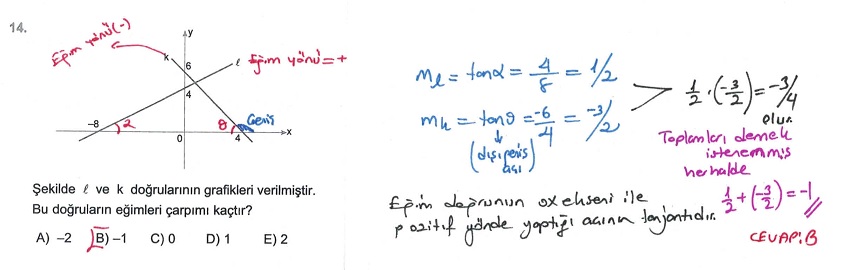 14.
Eğim yönü(-)
k
y
6
l Eğim yönü=+
4
-8
2
θ
Geniş
x
0
4
Şekilde ℓ ve k doğrularının grafikleri verilmiştir.
Bu doğruların eğimleri çarpımı kaçtır?
A) –2 B) –1 C) 0 D) 1 E) 2
mℓ = tanα = 4/8 = 1/2
mk = tanθ = -6/4 = -3/2
(dışı geniş açı)
1/2 · (-3/2) = -3/4
olur.
Toplamları demek
istenemmiş
herhalde
1/2 + (-3/2) = -1
Eğim doğrunun ox ekseni ile
pozitif yönde yaptığı açının tanjantıdır.
CEVAP:B